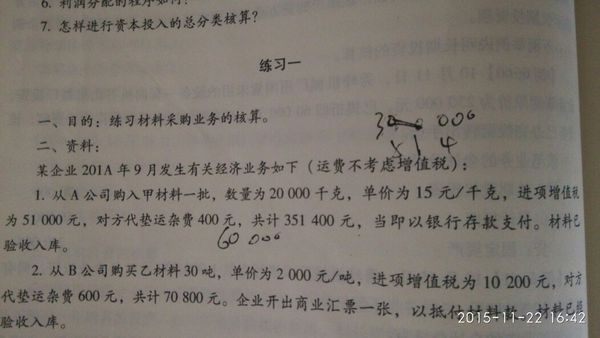 6. 利润分配的程序如何?
7. 怎样进行资本投入的总分类核算?
练习一
一、目的：练习材料采购业务的核算。
30 000
二、资料：
某企业 201A 年 9 月发生有关经济业务如下（运费不考虑增值税）：
1. 从 A 公司购入甲材料一批，数量为 20 000 千克，单价为 15 元/千克，进项增值税
为 51 000 元，对方代垫运杂费 400 元，共计 351 400 元，当即以银行存款支付。材料已
验收入库。
60 000
2. 从 B 公司购买乙材料 30 吨，单价为 2 000 元/吨，进项增值税为 10 200 元，对方
代垫运杂费 600 元，共计 70 800 元。企业开出商业汇票一张，以抵付材料款。材料已经
验收入库。
2015-11-22 16:42